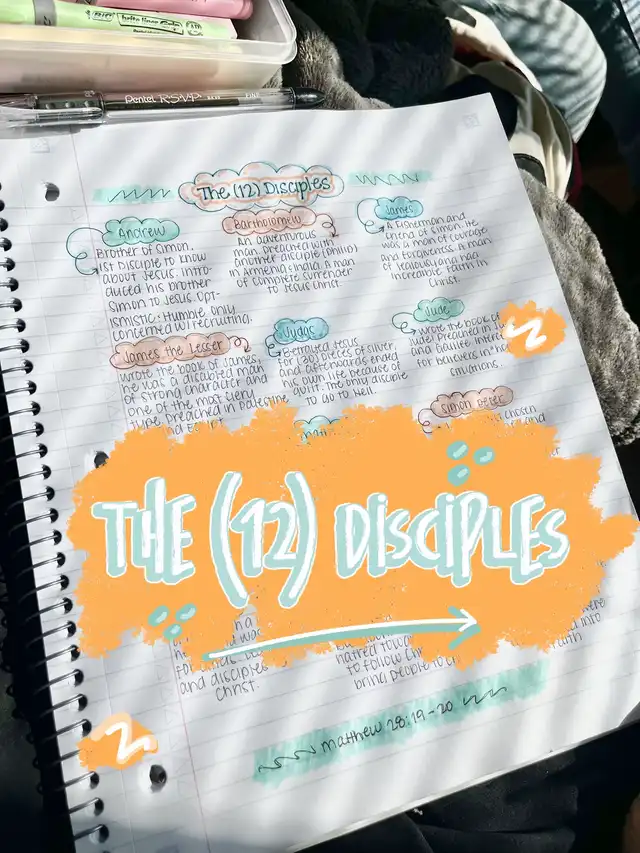 BIC brite liner
Pentel R.S.V.P.
The (12) Disciples
Andrew
Brother of Simon.
1st Disciple to know
about Jesus. Intro-
duced his brother
Simon to Jesus. Opt-
imistic & Humble. Only
concerned w/ recruiting.
Bartholomew
An adventurous
man. Preached with
another disciple (Philip)
in Armenia & India. A man
of complete surrender
to Jesus Christ.
James
A fisherman and
friend of Simon. He
was a man of courage
and forgiveness. A man
of jealousy and had
incredible faith in
Christ.
James the Lesser
Wrote the book of James,
he was a dedicated man
of strong character and
one of the most fiery
type. Preached in Palestine
and
Judas
Betrayed Jesus
for (30) pieces of silver,
and afterwards ended
his own life because of
guilt. The only disciple
to go to Hell.
Jude
Wrote the book of
Jude! Preached in
and
for believers in
situations.
Simon Peter
chosen
THE (12) DISCIPLES
and disciples
Christ.
hatred
to follow
bring people to
were
into
faith
matthew 28:19-20